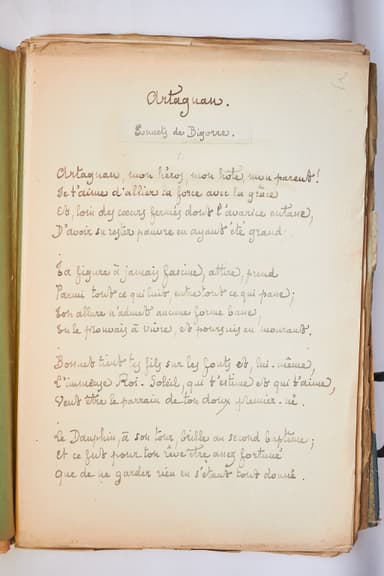 Artagnan.
Sonnets de Bigorre.
Artagnan, mon héros, mon hôte, mon parent!
Je t'aime d'allier la force avec la grâce
Et, loin des cœurs fermés dont l'avarice entasse,
D'avoir su rester pauvre en ayant été grand.
Ta figure à jamais fascine, attire, prend
Parmi tout ce qui luit, entre tout ce qui passe;
Ton allure n'admet aucune forme basse,
Tu le prouvais à vivre, et poursuis en mourant.
Bossuet tient tes fils sur les fonts et, lui-même,
L'immense Roi-Soleil, qui t'estime et qui t'aime,
Veut être le parrain de ton doux premier-né.
Le Dauphin, à son tour, brille au second baptême;
Et ce fut pour ton rêve être assez fortuné
Que de ne garder rien en s'étant tout donné.